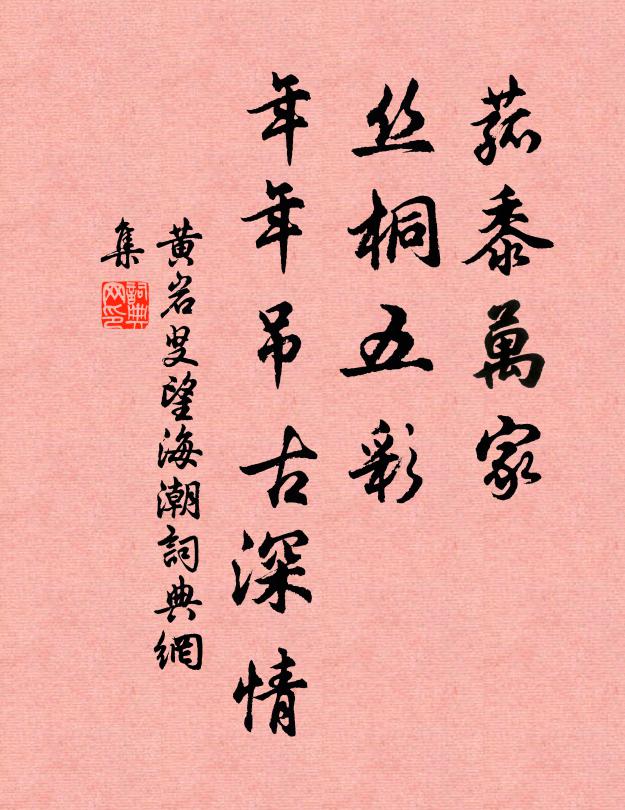 菰黍萬家
丝桐五彩
年年吊古深情
黄岩叟望海潮詞典網
集
詞典
网印